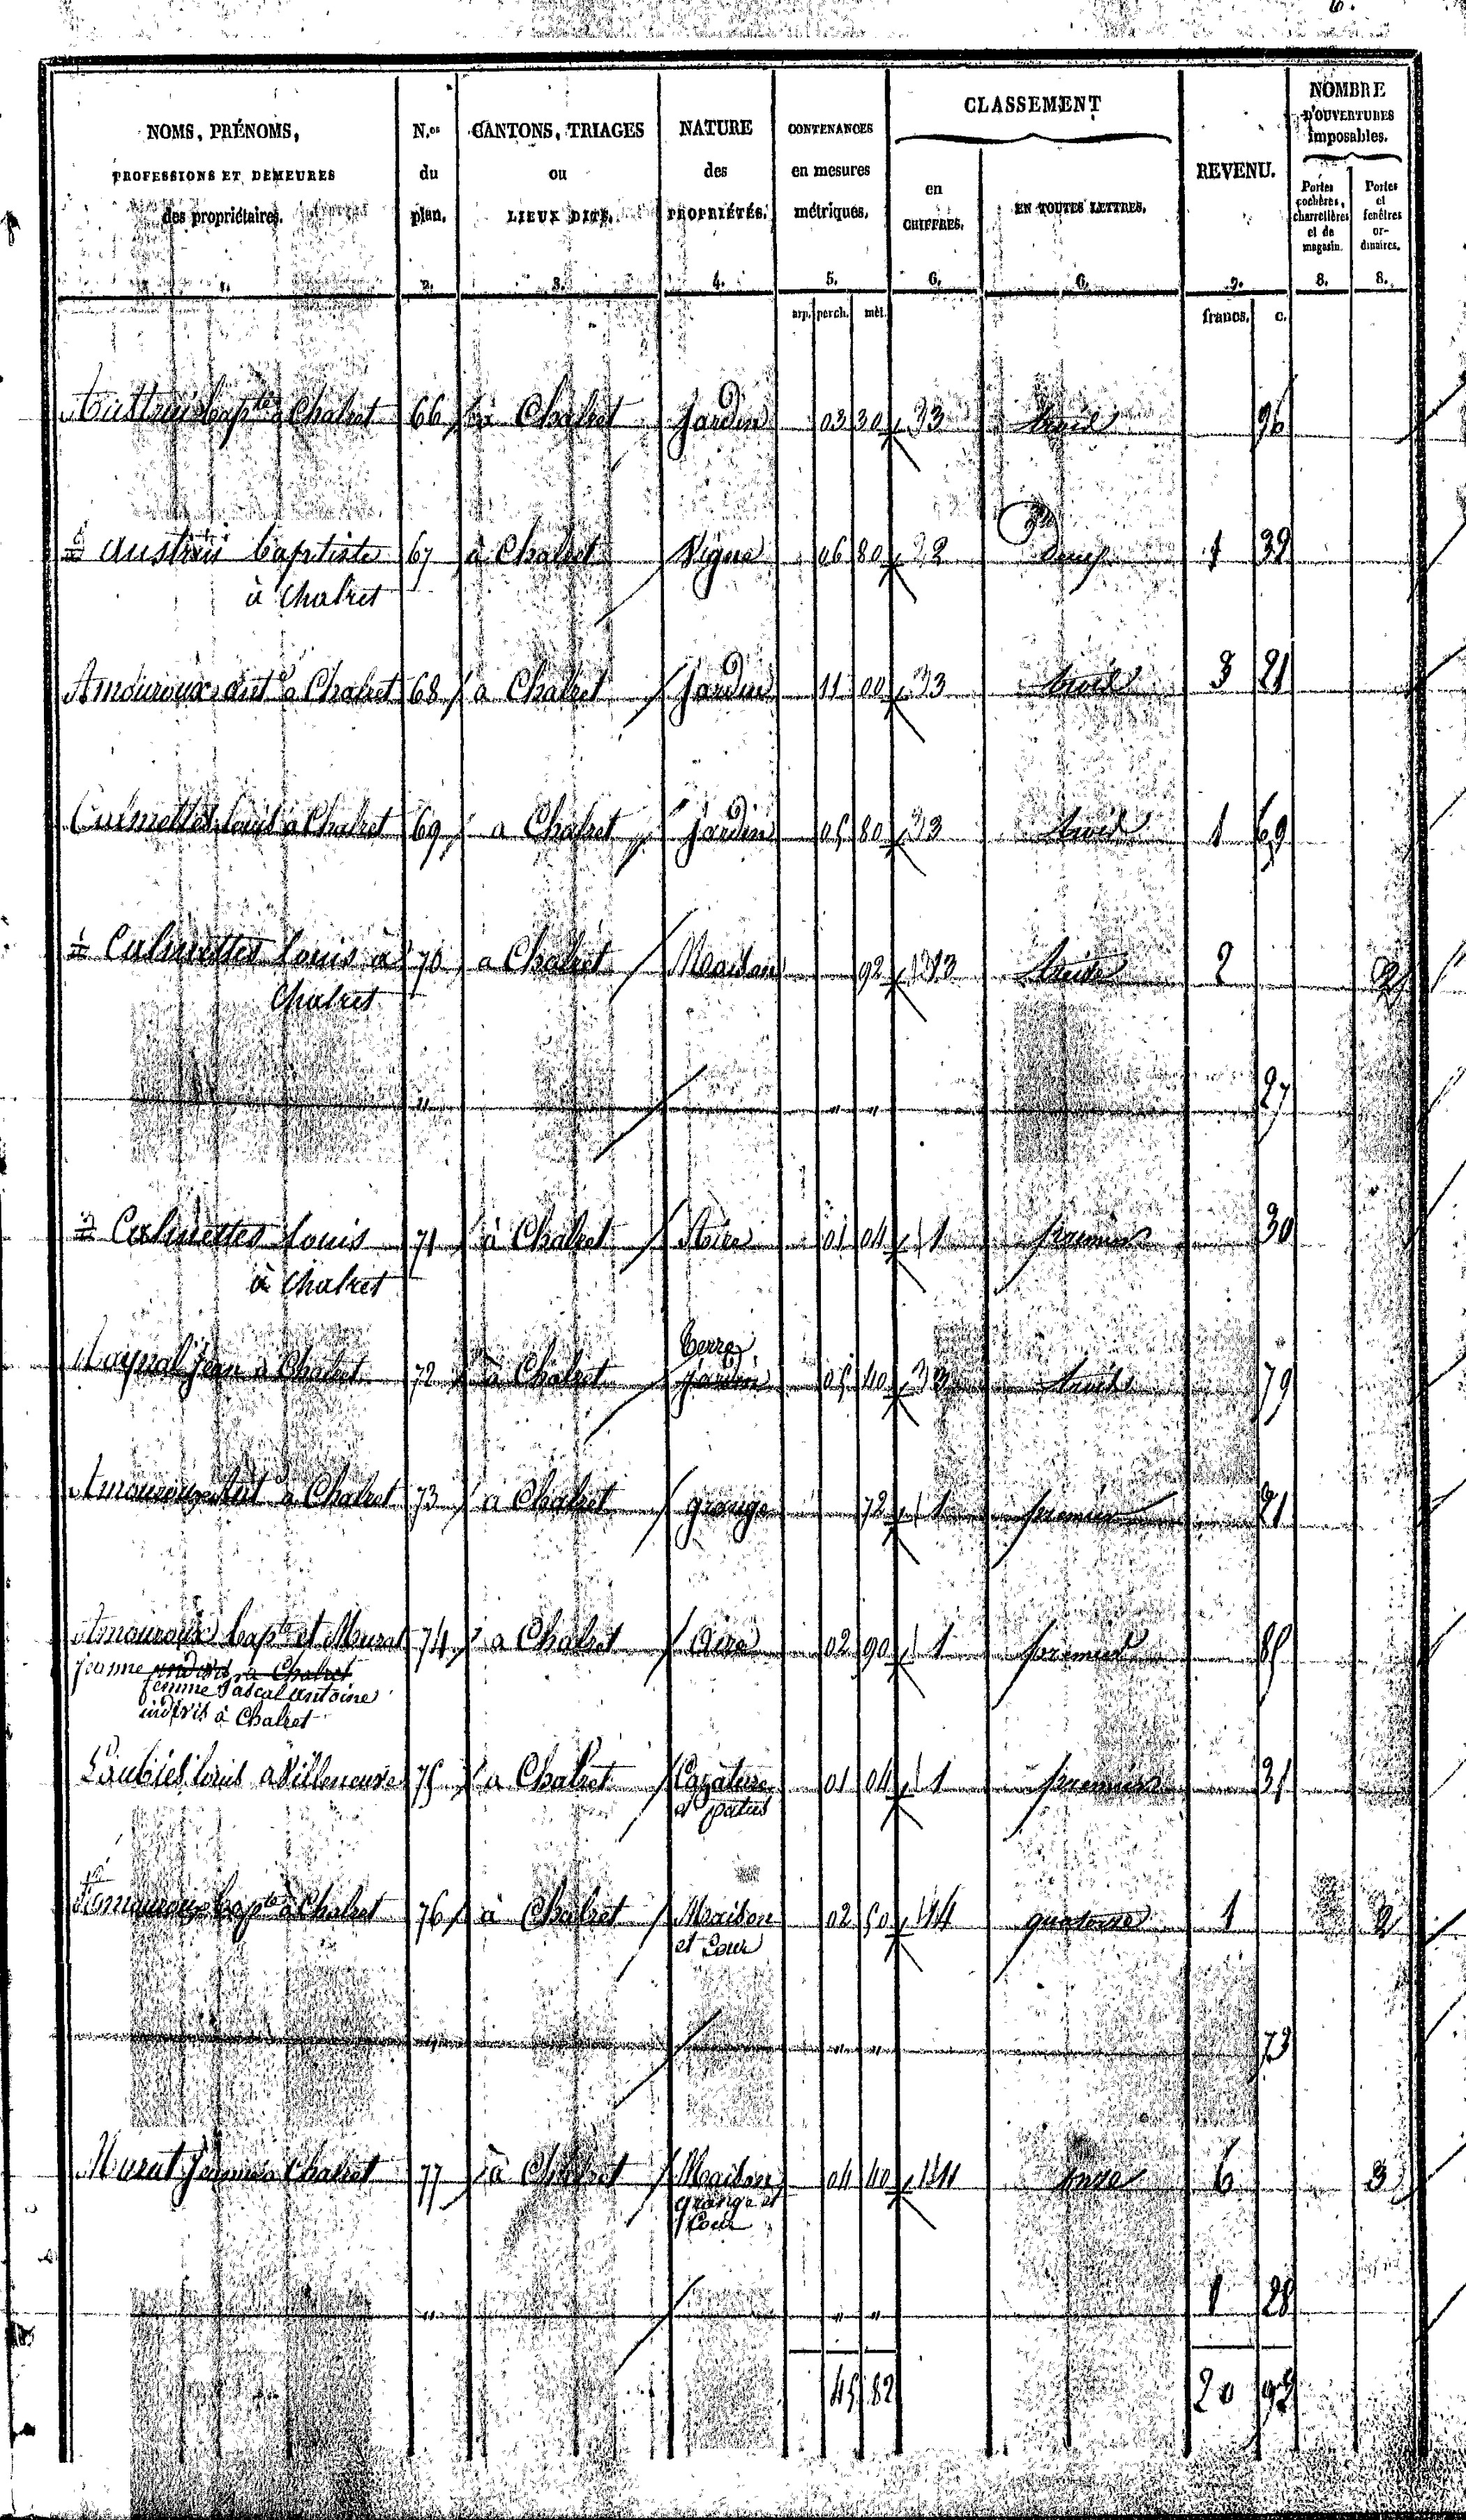 6.
NOMS, PRÉNOMS, PROFESSIONS ET DEMEURES des propriétaires. 1.
N.os du plan. 2.
CANTONS, TRIAGES ou LIEUX DITS. 3.
NATURE des PROPRIÉTÉS. 4.
CONTENANCES en mesures métriques. 5.
CLASSEMENT
en CHIFFRES. 6.
EN TOUTES LETTRES. 6.
REVENU. 7.
NOMBRE D'OUVERTURES imposables.
Portes cochères, charretières et de magasin. 8.
Portes et fenêtres ordinaires. 8.
arp. perch. mèt. francs. c.
Bapte à Chalret 66 à Chalret Jardin 03 30 33 trois 96
Baptiste 67 à Chalret Vigne 06 80 22 deux 1 32
à Chalret
Amouroux ant à Chalret 68 à Chalret Jardin 11 00 33 trois 3 21
Calmettes Louis à Chalret 69 à Chalret Jardin 05 80 33 trois 1 69
Calmettes Louis à 70 à Chalret Maison 92 treize 2 2
Chalret
" " " 27
Calmettes Louis 71 à Chalret Aire 01 04 1 premier 30
à Chalret
Terre
Jean à Chalret 72 à Chalret Jardin 05 40 33 trois 79
Amouroux ant à Chalret 73 à Chalret grange 72 1 premier 21
Amouroux Bapte et Murat 74 à Chalret Aire 02 90 1 premier 85
jeanne indivis à Chalret
femme Pascal antoine
indivis à Chalret
Louis à Villeneuve 75 à Chalret 01 04 1 premier 31
et patus
Amouroux Bapte à Chalret 76 à Chalret Maison 02 50 14 quatorze 1 2
et Cour
" " " 73
Murat Jeanne à Chalret 77 à Chalret Maison 04 40 11 onze 6 3
grange et
Cour
" " " 1 28
45 82 20 92